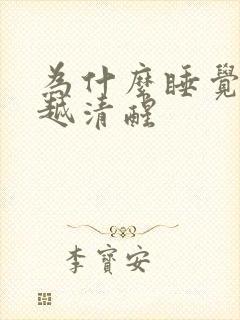 為什麼睡覺
越清醒
李寶安